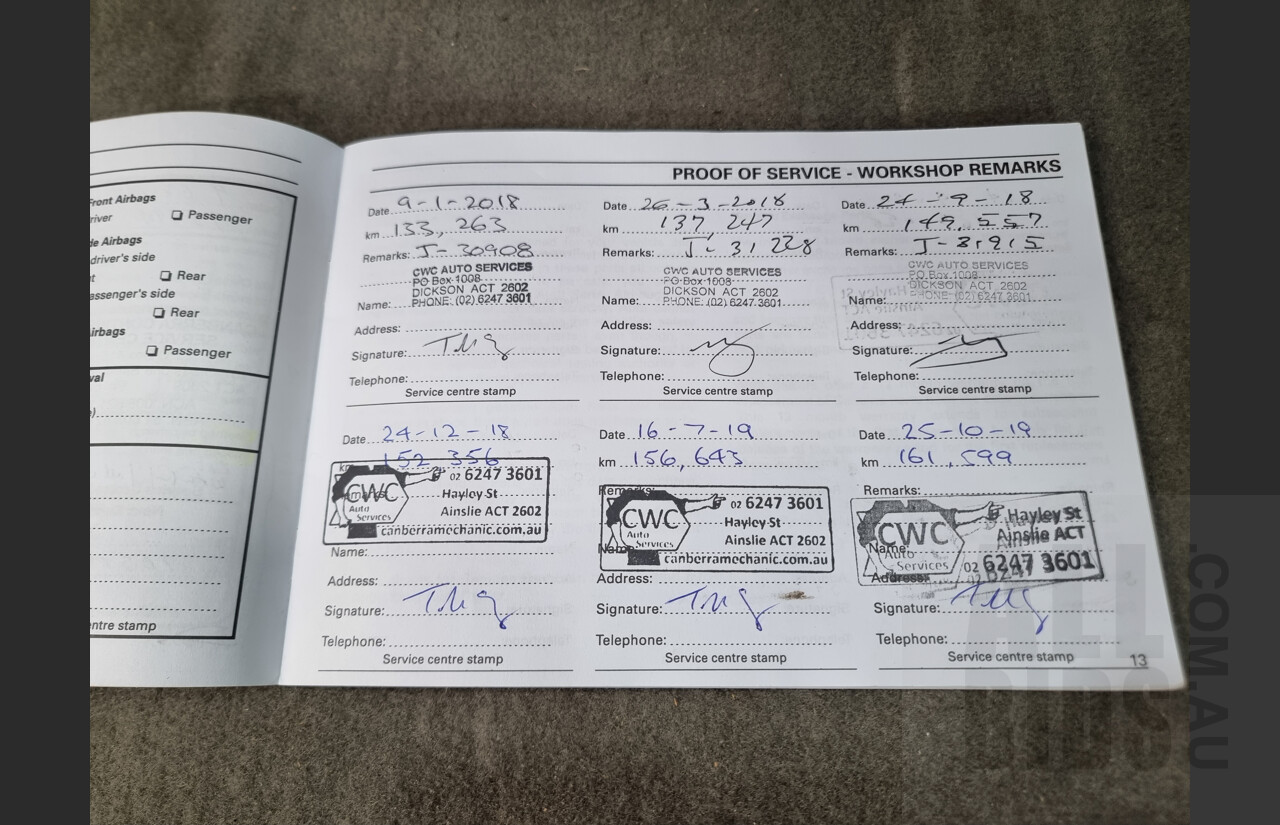 Front Airbags
river
❏ Passenger
de Airbags
driver's side
❏ Rear
assenger's side
❏ Rear
irbags
❏ Passenger
val
entre stamp
PROOF OF SERVICE - WORKSHOP REMARKS
Date 9-1-2018
km 133, 263
Remarks: J-30908
CWC AUTO SERVICES
PO Box 1008
DICKSON ACT 2602
Name: PHONE: (02) 6247 3601
Address:
Signature:
Telephone:
Service centre stamp
Date 26-3-2018
km 137, 247
Remarks: J-31,228
CWC AUTO SERVICES
PO Box 1008
DICKSON ACT 2602
Name: PHONE: (02) 6247 3601
Address:
Signature:
Telephone:
Service centre stamp
Date 24-9-18
km 149,557
Remarks: J-31915
CWC AUTO SERVICES
PO Box 1008
DICKSON ACT 2602
Name: PHONE: (02) 6247 3601
Address:
Signature:
Telephone:
Service centre stamp
Date 24-12-18
km 152 356
CWC Auto Services
02 6247 3601
Hayley St
Ainslie ACT 2602
canberramechanic.com.au
Name:
Address:
Signature:
Telephone:
Service centre stamp
Date 16-7-19
km 156,643
Remarks:
CWC Auto Services
02 6247 3601
Hayley St
Ainslie ACT 2602
canberramechanic.com.au
Name:
Address:
Signature:
Telephone:
Service centre stamp
Date 25-10-19
km 161,599
Remarks:
CWC Auto Services
Hayley St
Ainslie ACT
02 6247 3601
Name:
Address:
Signature:
Telephone:
Service centre stamp
13
ALL
BIDS
.COM.AU